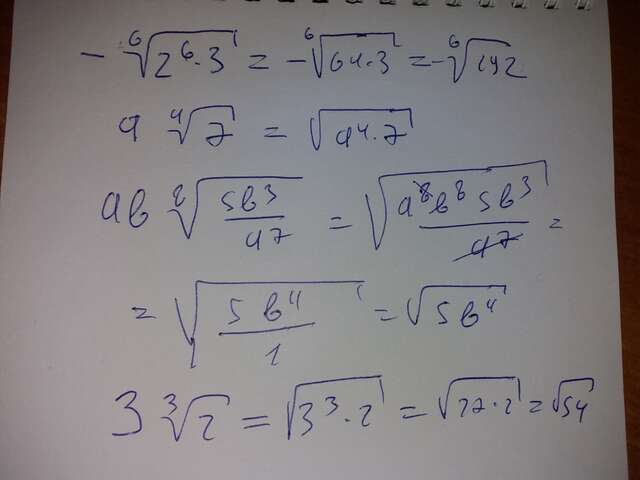 -⁶√(2⁶·3) = -⁶√(64·3) = -⁶√192
a ⁴√7 = √(a⁴·7)
ab ⁸√(5b³/a7) = √(a⁸b⁸5b³/a7) =
= √(5b⁴/1) = √(5b⁴)
3 ³√2 = √(3³·2) = √(27·2) = √54